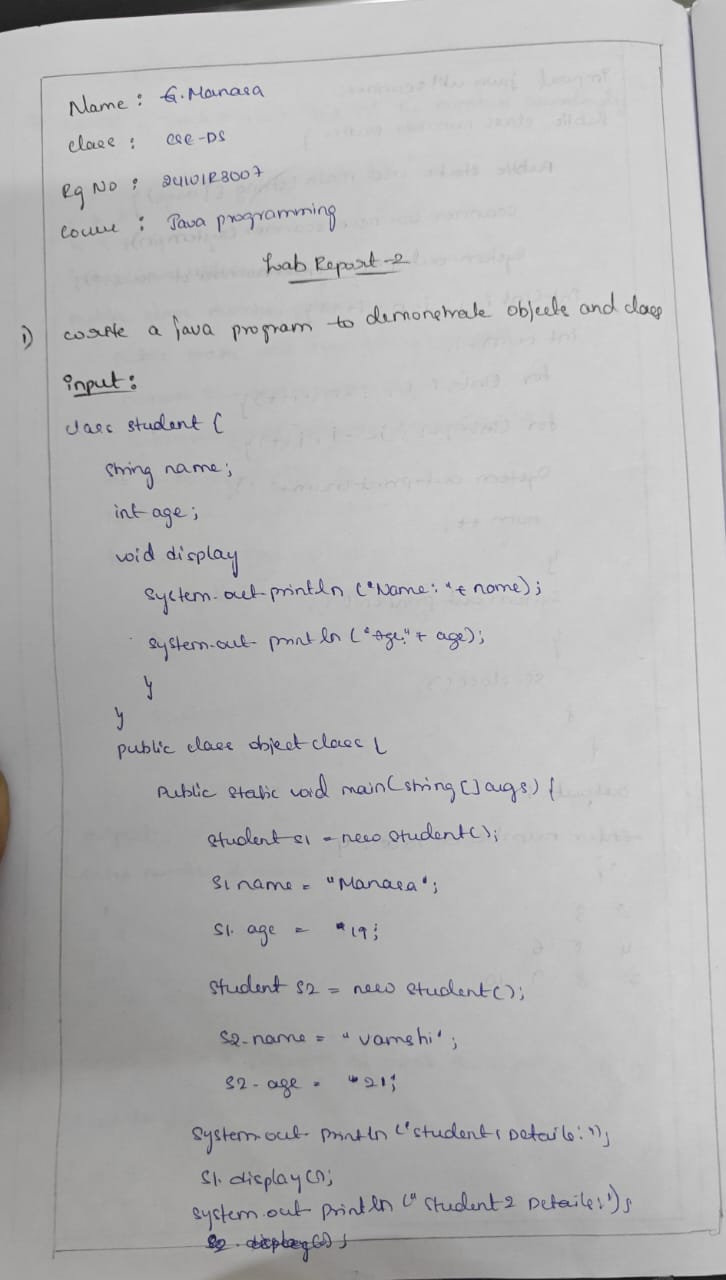 Name : G. Manasa
class : CSE-DS
Rg No : 24101R3007
course : Java programming
Lab Report-2
1) write a java program to demonstrate objects and class
input:
class student {
string name;
int age;
void display
system.out.println ("Name: "+ name);
system.out println ("Age:"+ age);
}
}
public class object class {
public static void main(string [] args) {
student s1 = new student();
s1 name = "Manasa";
s1. age = "19;
student s2 = new student();
s2.name = "vamshi";
s2.age = "21;
system.out println ("student1 Details:");
s1. display();
system.out println ("student2 Details:");
s2. display();